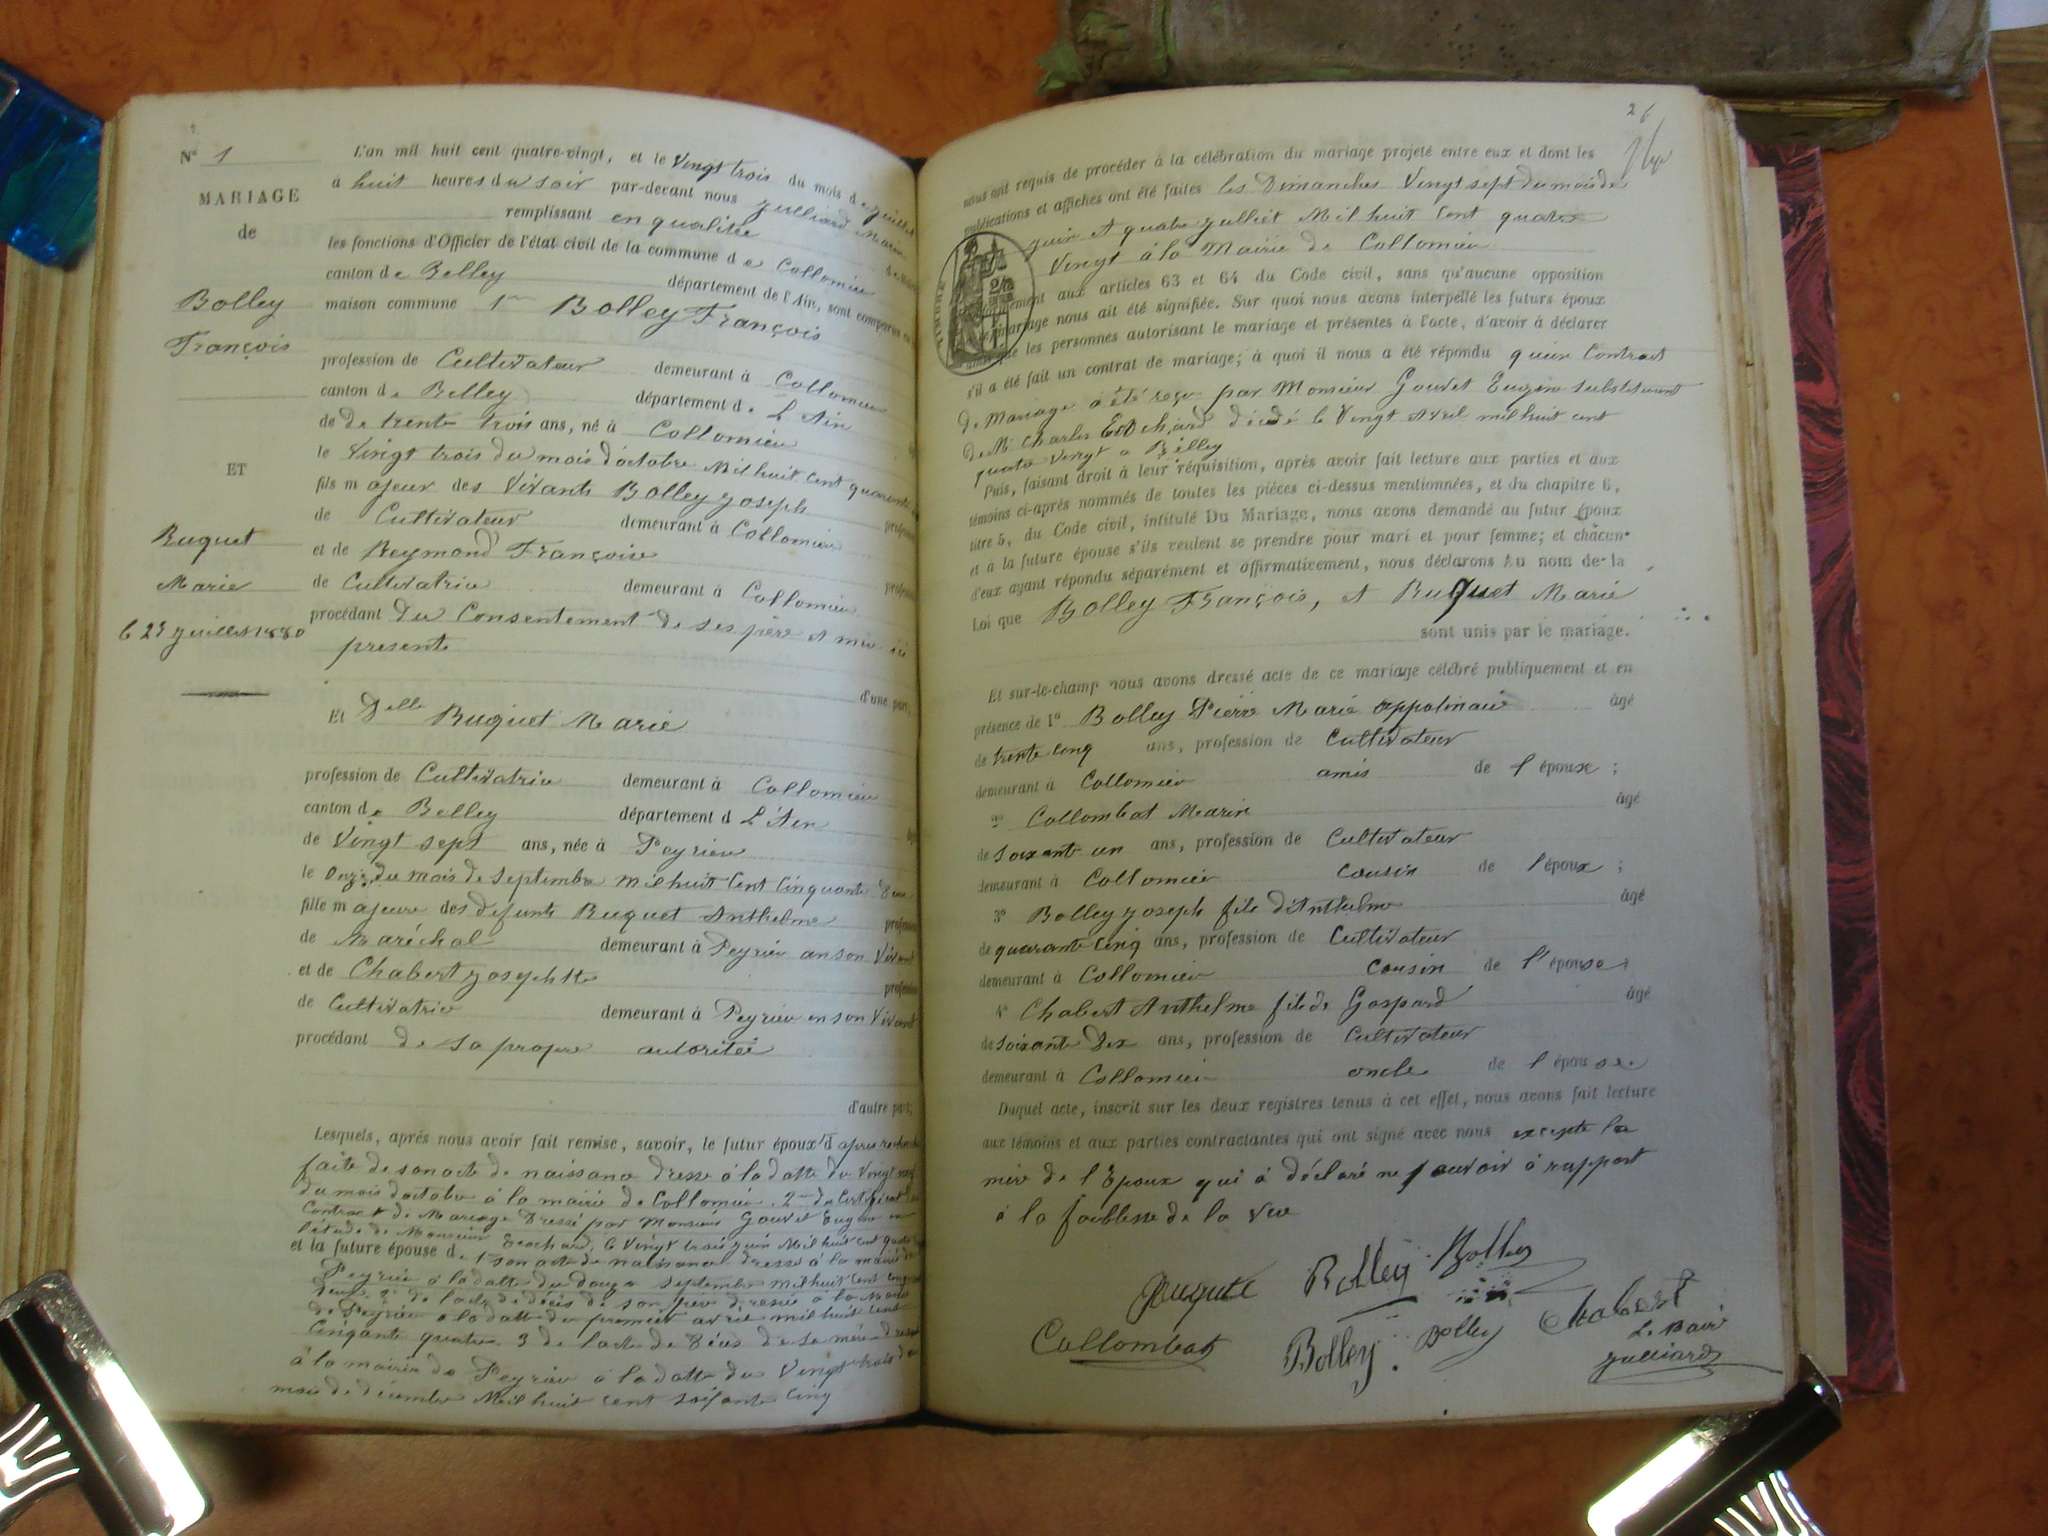 N° 1
MARIAGE
de
Bolley
François
ET
Buquet
Marie
le 23 juillet 1880
L'an mil huit cent quatre-vingt, et le Vingt trois du mois de juillet
à huit heures du soir par-devant nous Julliard Marin
remplissant en qualitée
les fonctions d'Officier de l'état civil de la commune de Collomieu
canton de Belley département de l'Ain, sont comparus en
maison commune 1° Bolley François
profession de Cultivateur demeurant à Collomieu
canton de Belley département de L'Ain
de de trente trois ans, né à Collomieu
le Vingt trois du mois d'octobre Mil huit cent quarante
fils majeur des Vivants Bolley joseph
de Cultivateur demeurant à Collomieu
et de Reymond Françoise
de Cultivatrice demeurant à Collomieu
procédant du Consentement de ses père et mère ici
presents
d'une part,
Et Delle Buquet Marie
profession de Cultivatrice demeurant à Collomieu
canton de Belley département d L'Ain
de Vingt sept ans, née à Peyrieu
le Onze du mois de Septembre mil huit Cent Cinquante deux
fille majeure des défunts Buquet Anthelme
de Maréchal demeurant à Peyrieu en son Vivant
et de Chabert josephte
de Cultivatrice demeurant à Peyrieu en son Vivant
procédant de sa propre autoritée
d'autre part;
Lesquels, après nous avoir fait remise, savoir, le futur époux 1° d'après recherche
faite de son acte de naissance dressé à la datte du Vingt
du mois d'octobre à la mairie de Collomieu. 2° du Certificat de
Contract de Mariage Dressé par Monsieur Gouvet Eugène en
l'étude de Monsieur Ecochard, le Vingt trois juin Mil huit cent quatre
et la future épouse de 1° son acte de naissance dressé à la mairie de
Peyrieu à la datte du douze septembre mil huit cent cinquante
deux 2° de l'acte de décès de son père dressé à la Mairie
de Peyrieu à la datte du premier avril mil huit cent
Cinquante quatre 3 de l'acte de décès de sa mère dressé
à la mairie de Peyrieu à la datte du Vingt trois du
mois de décembre Mil huit cent soixante Cinq
26
nous ont requis de procéder à la célébration du mariage projeté entre eux et dont les
publications et affiches ont été faites les Dimanches Vingt sept du mois de
juin et quatre julliet Mil huit Cent quatre
Vingt à la Mairie de Collomieu
TIMBRE
conformément aux articles 63 et 64 du Code civil, sans qu'aucune opposition
au mariage nous ait été signifiée. Sur quoi nous avons interpellé les futurs époux
ainsi que les personnes autorisant le mariage et présentes à l'acte, d'avoir à déclarer
s'il a été fait un contrat de mariage; à quoi il nous a été répondu qu'un Contract
de Mariage a été reçu par Monsieur Gouvet Eugène substituant
de Mr Charles Ecochard décédé le Vingt Avril mil huit cent
quatre Vingt a Belley
Puis, faisant droit à leur réquisition, après avoir fait lecture aux parties et aux
témoins ci-après nommés de toutes les pièces ci-dessus mentionnées, et du chapitre 6,
titre 5, du Code civil, intitulé Du Mariage, nous avons demandé au futur époux
et à la future épouse s'ils veulent se prendre pour mari et pour femme; et chacun
d'eux ayant répondu séparément et affirmativement, nous déclarons Au nom de la
Loi que Bolley François, et Buquet Marie
sont unis par le mariage.
Et sur-le-champ nous avons dressé acte de ce mariage célébré publiquement et en
présence de 1° Bolley Pierre Marie appolinaire âgé
de trente cinq ans, profession de Cultivateur
demeurant à Collomieu amis de l'époux;
2° Collombat Marin âgé
de soixante un ans, profession de Cultivateur
demeurant à Collomieu cousin de l'époux;
3° Bolley joseph fils d'Anthelme âgé
de quarante cinq ans, profession de Cultivateur
demeurant à Collomieu cousin de l'épouse;
4° Chabert Anthelme fils de Gaspard âgé
de soixante Dix ans, profession de Cultivateur
demeurant à Collomieu oncle de l'épouse.
Duquel acte, inscrit sur les deux registres tenus à cet effet, nous avons fait lecture
aux témoins et aux parties contractantes qui ont signé avec nous excepte la
mère de l'Epoux qui à déclaré ne pouvoir à rapport
à la faiblesse de la vue
Buquet Bolley Bolley
Collombat Bolley Bolley Chabert
Le Maire
Julliard